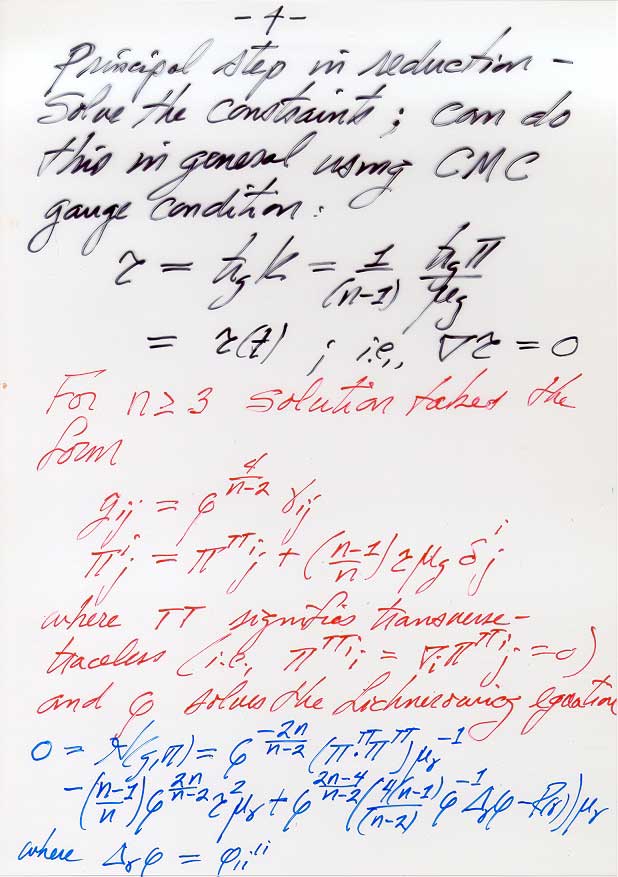 - 4 -
Principal step in reduction -
Solve the constraints ; can do
this in general using CMC
gauge condition:
τ = tr_g k = 1/(n-1) tr_g π/μ_g
= τ(t) ; i.e., ∇τ = 0
For n ≥ 3 solution takes the
form
g_ij = φ^{4/(n-2)} γ_ij
π^i_j = π^{TT i}_j + ((n-1)/n) τ μ_g δ^i_j
where TT signifies transverse-
traceless (i.e., π^{TT i}_i = ∇_i π^{TT i}_j = 0)
and φ solves the Lichnerowicz equation
0 = H(g,π) = φ^{-2n/(n-2)} (π^{TT}·π^{TT}) μ_γ^{-1}
-((n-1)/n) φ^{2n/(n-2)} τ^2 μ_γ + φ^{(2n-4)/(n-2)} (4(n-1)/(n-2) φ^{-1} Δ_γ φ - R(γ)) μ_γ
where Δ_γ φ = φ_{|i}^{|i}